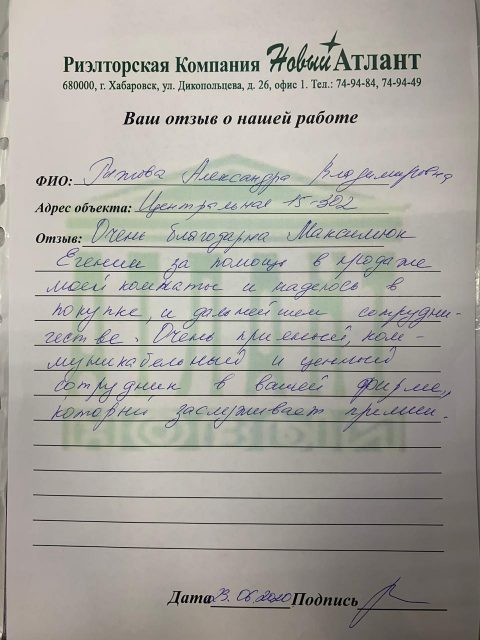 Риэлторская Компания Новый Атлант
680000, г. Хабаровск, ул. Дикопольцева, д. 26, офис 1. Тел.: 74-94-84, 74-94-49
Ваш отзыв о нашей работе
ФИО: Александра Владимировна
Адрес объекта: Центральная 15-302
Отзыв: Очень благодарна Максимюк
Егении за помощь в продаже
моей комнаты и надеюсь в
покупке, и дальнейшем сотрудни-
честве. Очень приятный, ком-
муникабельный и ценный
сотрудник в вашей фирме,
который заслуживает премии.
Дата 23.06.2020 Подпись